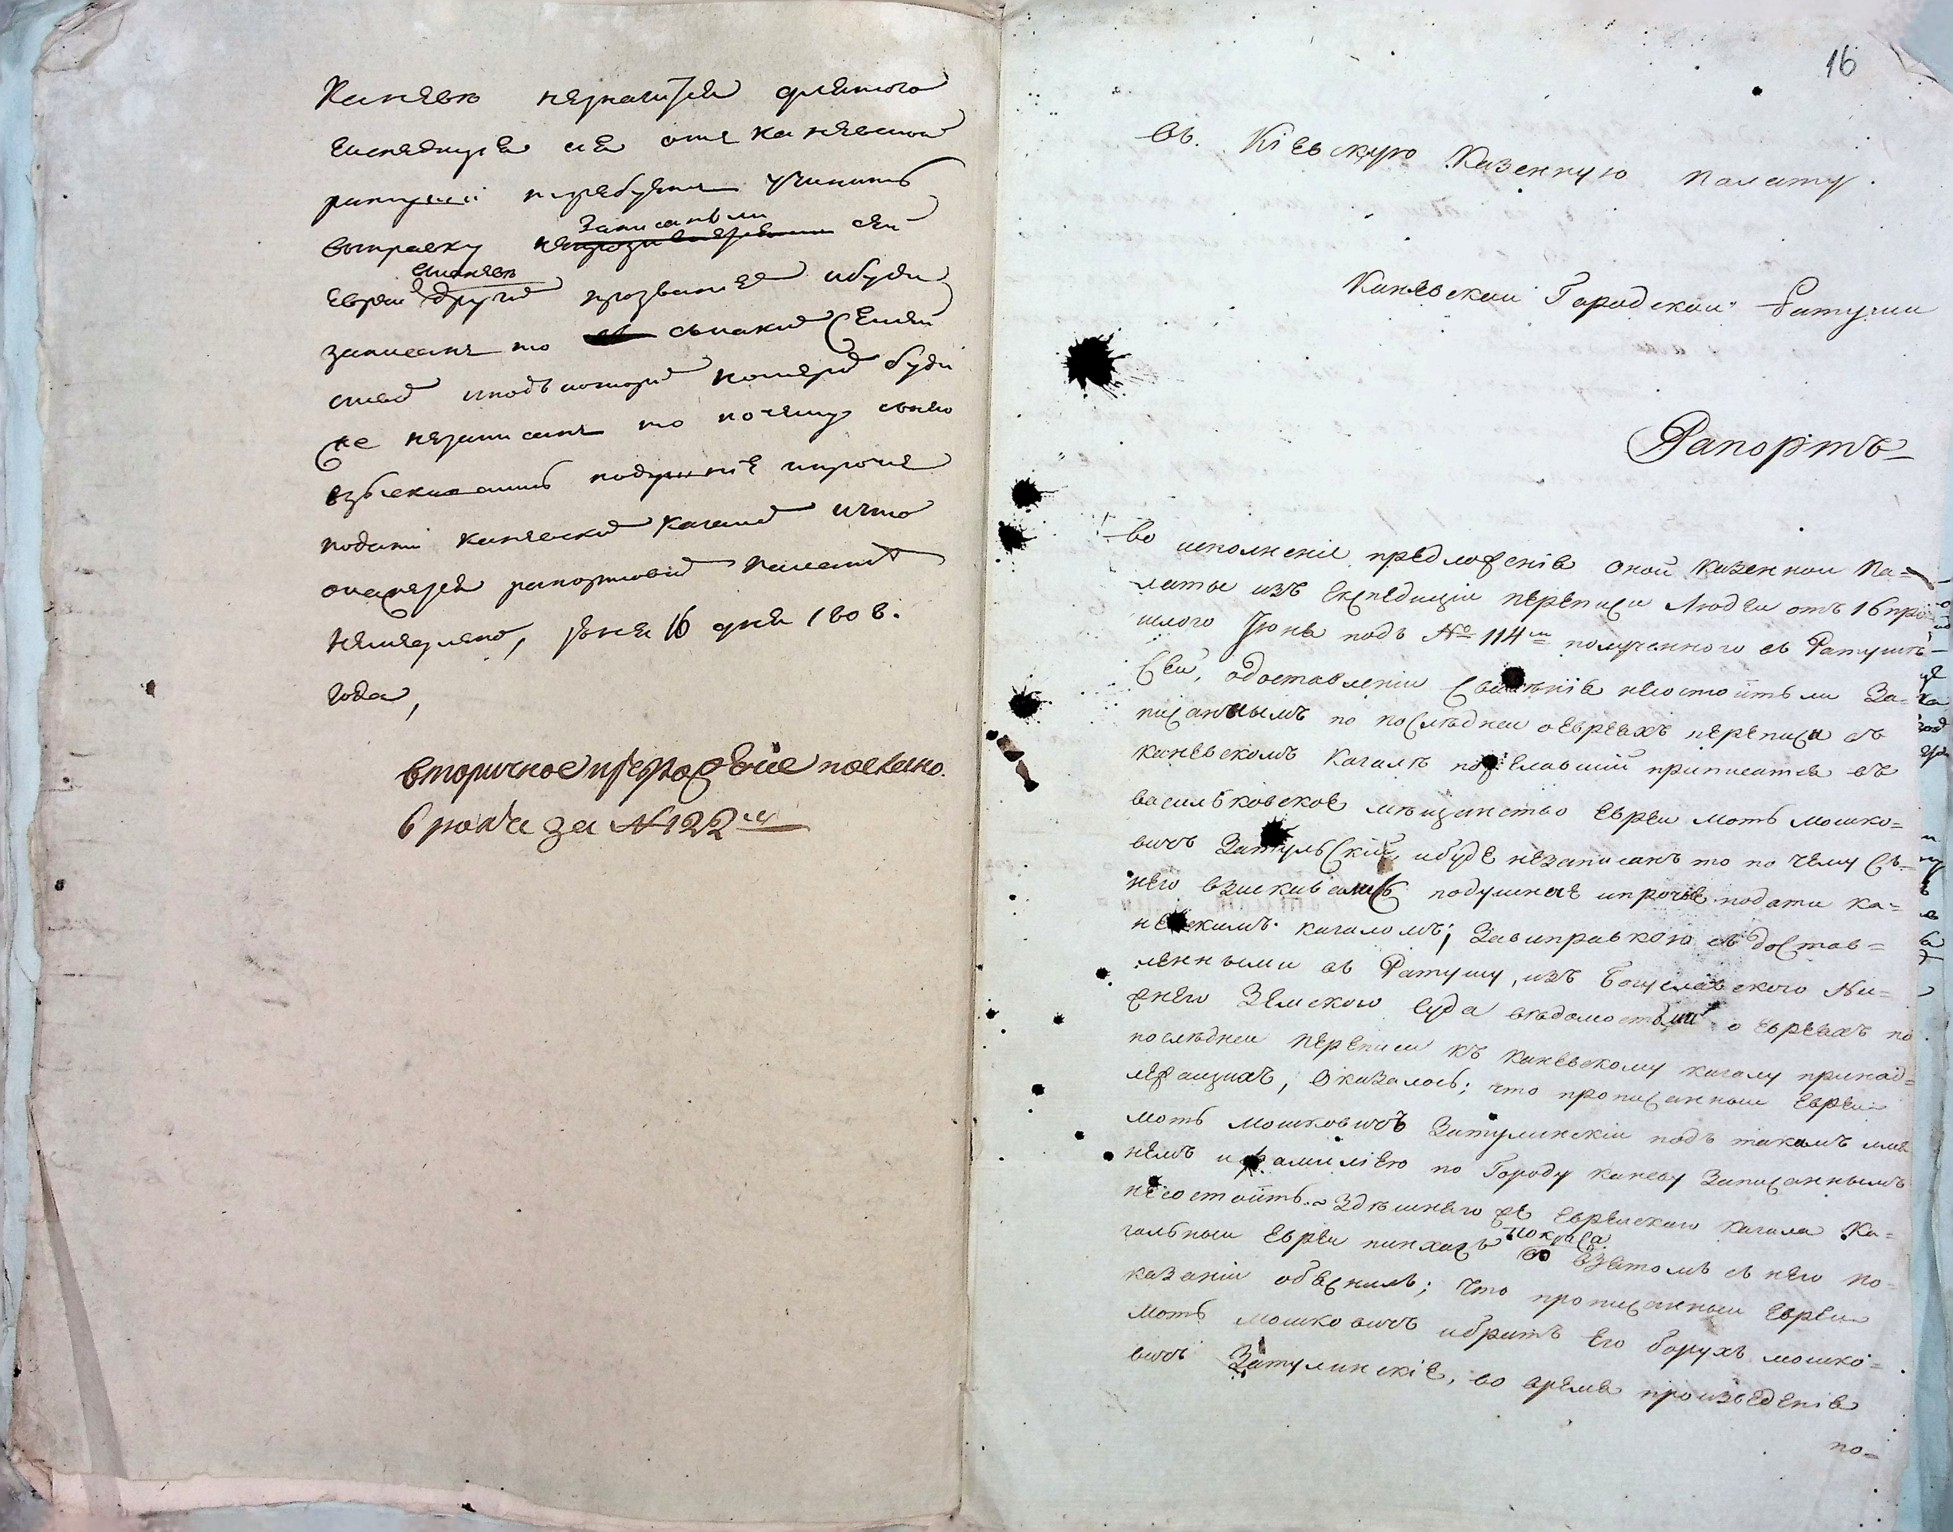 Каневѣ незначится для того
Експедиція сія отъ каневской
ратуши требуетъ учинить
выправку Записанъ ли сей
Еврей въ Каневѣ другіе прозваніе и буди
записанъ то съ какою Семьею
и подъ которымъ номеромъ буди
же незаписанъ то почему снего
взыскивались подушніе и прочіе
подати каневскимъ Кагаломъ и что
окажется рапортовать палатѣ
немедлено, Іюня 16 дня 1808.
Года,
вторичное предложение послано.
Сроку за №122
16
Въ Кіевскую Казенную Палату.
Каневской Городской Ратуши
Рапортъ
Во исполненіе предложенія Оной Казенной Па=
латы изъ Експедиціи переписи Людей отъ 16 про
шлого Іюня подъ № 114м полученного въ Ратуше
Сей, о доставленіи Свѣденія несостоитъ ли За=
писаннымъ по последней о евреяхъ переписи въ
каневскомъ Кагалѣ пожелавшій приписатся въ
васильковское мещанство Еврей Моть мошко=
вичъ Затульскій, и буде незаписанъ то по чему Съ
него взыскивались подушные и прочіе подати ка=
невскимъ кагаломъ; За выправкою съ достав=
ленными въ Ратушу, изъ Богуславского Ни=
жнего Земского Суда ведомостьми о Евреяхъ по
последней переписи къ каневскому кагалу принад=
лежащихъ, Оказалось; что прописанный Еврей
Моть Мошковичъ Затулинскій подъ такимъ име
немъ и фамиліею по Городу Каневу Записаннымъ
несостоитъ. Здешнего же Еврейского кагала Ка=
гальный Еврей пинхасъ во взятомъ съ него по=
казаніи объяснилъ; Что прописанный Еврей
Моть Мошковичъ и братъ Его Борухъ мошко=
вичъ Затулинскіе, во время произведенія
по=